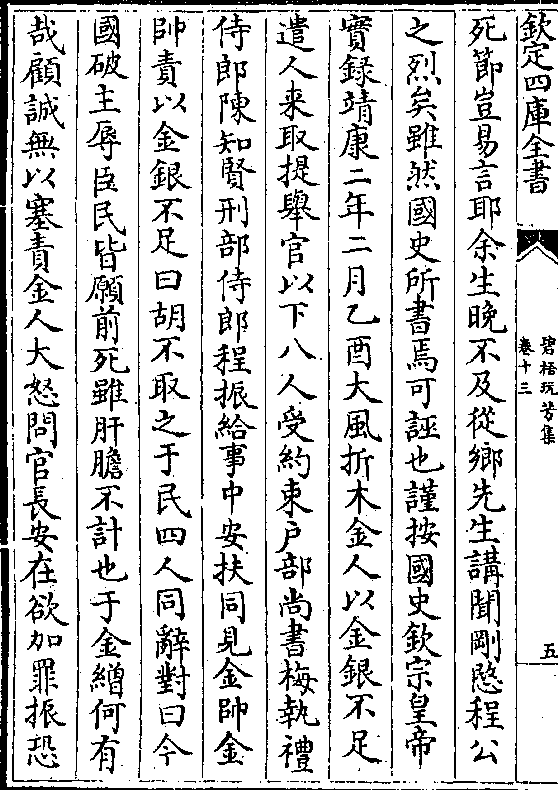 欽定四庫全書
碧梧玩芳集
卷十三
五
死節豈易言耶余生晚不及從鄉先生講聞剛愍程公
之烈矣雖然國史所書焉可誣也謹按國史欽宗皇帝
實録靖康二年二月乙酉大風折木金人以金銀不足
遣人来取提舉官以下八人受約束户部尚書梅執禮
侍郎陳知賢刑部侍郎程振給事中安扶同見金帥金
帥責以金銀不足曰胡不取之于民四人同辭對曰今
國破主辱臣民皆願前死雖肝膽不計也于金繒何有
哉顧誠無以塞責金人大怒問官長安在欲加罪振恐